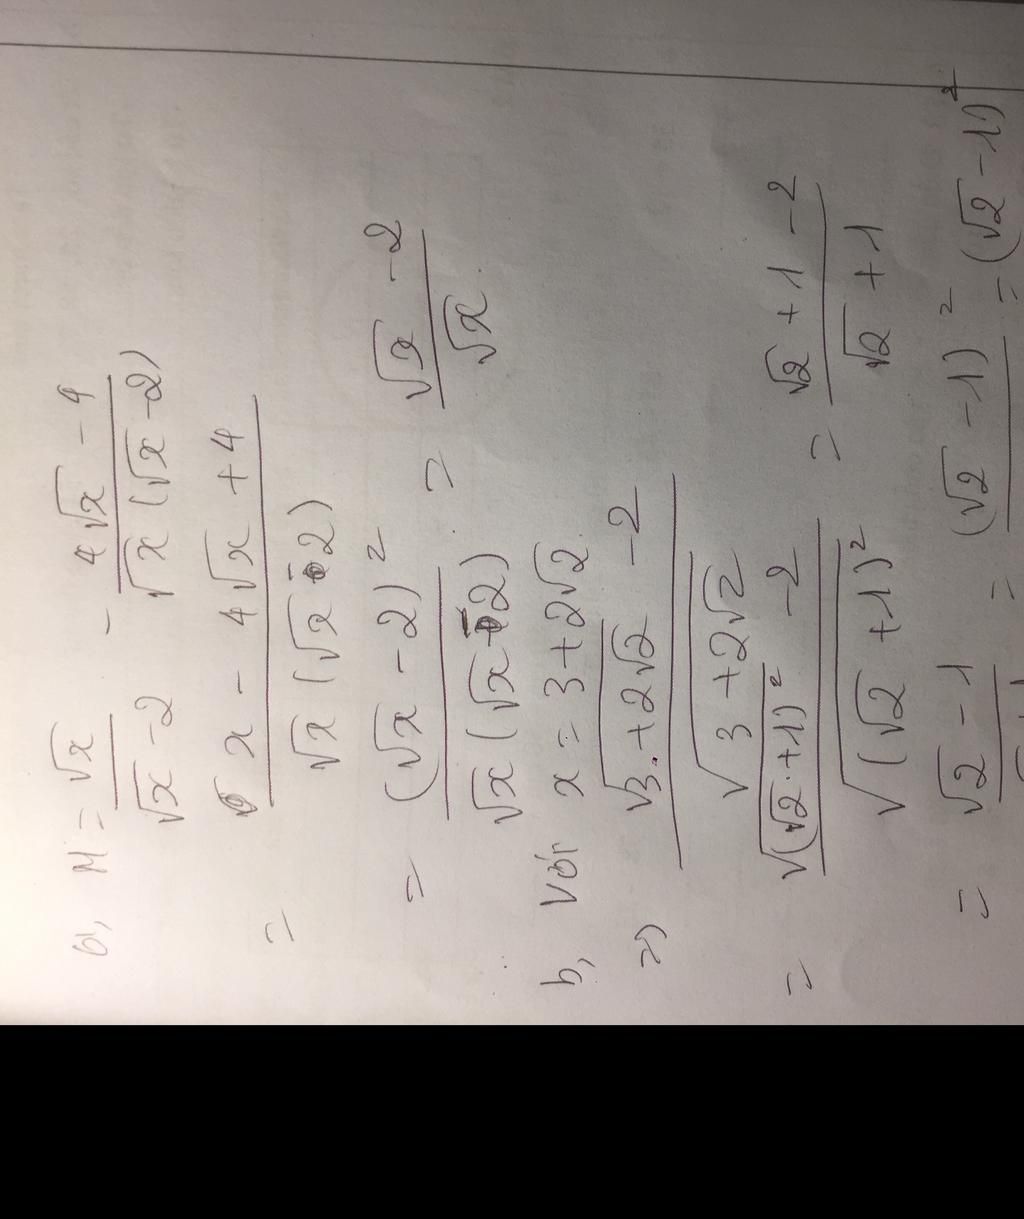 a, M = √x / (√x - 2) - (4√x - 4) / (√x (√x - 2))
= (x - 4√x + 4) / (√x (√x - 2))
= (√x - 2)² / (√x (√x - 2)) = (√x - 2) / √x
b, Với x = 3 + 2√2
=> (√(3 + 2√2) - 2) / √(3 + 2√2)
= (√((√2 + 1)²) - 2) / √((√2 + 1)²) = (√2 + 1 - 2) / (√2 + 1)
= √2 - 1 = (√2 - 1)² = (√2 - 1)²